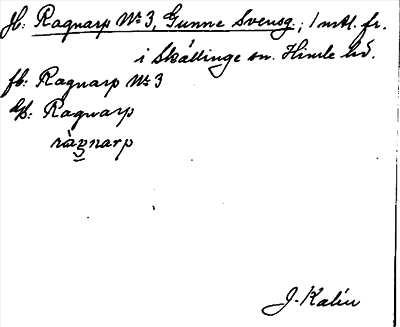 Jb: Ragnarp No 3, Gunne Svensg.; 1 mtl. fr.
i Skällinge sn. Himle hd.
fb: Ragnarp No 3
Ragnarp
ràgnarp
J. Kalén